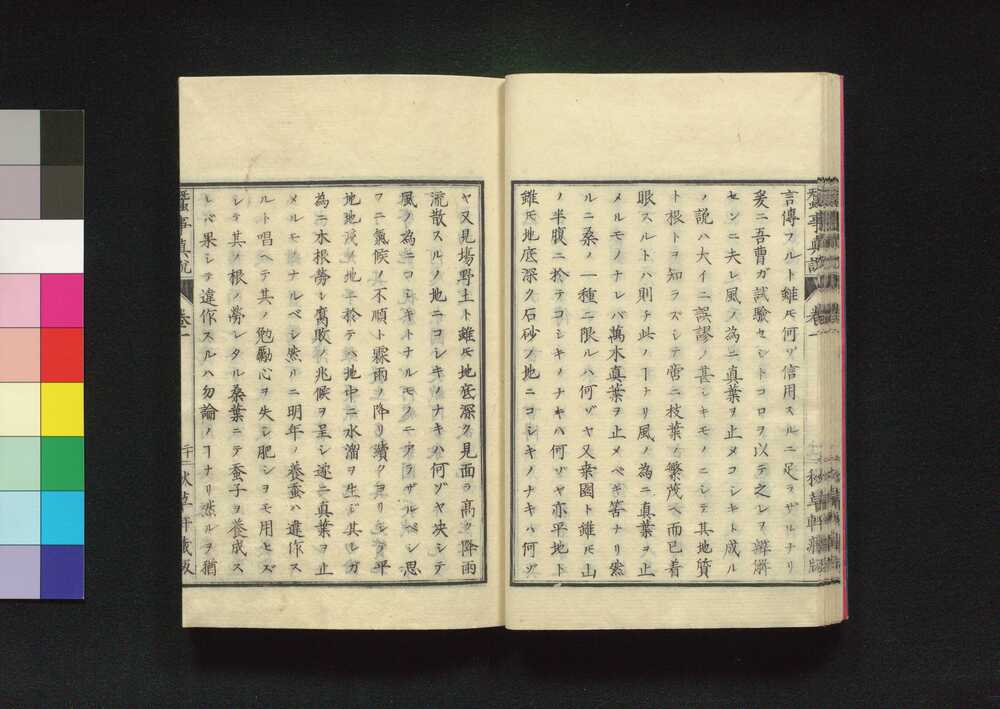 蚕事真説 卷一
言傳フルト雖モ何ゾ信用スルニ足ラザルナリ
爰ニ吾曹ガ試驗セシトコロヲ以テ之レヲ辯解
センニ夫レ風ノ為ニ真葉ヲ止メコシキト成ル
ノ説ハ大イニ誤謬ノ甚シキモノニシテ其地質
ト根トヲ知ラズシテ啻ニ枝葉ノ繁茂ヘ而已着
眼スルトハ則チ此ノヿナリ風ノ為ニ真葉ヲ止
メルモノナレバ萬木真葉ヲ止メベキ筈ナリ然
ルニ桑ノ一種ニ限ルハ何ゾヤ又桑園ト雖モ山
ノ半腹ニ於テコシキノナキハ何ゾヤ亦平地ト
雖モ地底深ク石砂ノ地ニコシキノナキハ何ゾ
ヤ又見塲野土ト雖モ地底深ク見面ヲ高ク降雨
流散スルノ地ニコシキノナキハ何ゾヤ决シテ
風ノ為ニコシキトナルモノニアラザルベシ思
フニ氣候ノ不順ト霖雨ノ降リ續クヨリシテ平
地地淺ノ地ニ於テハ地中ニ水溜ヲ生ジ其レガ
為ニ木根勞シ腐敗ノ兆候ヲ呈シ遂ニ真葉ヲ止
メルモノナルベシ然ルニ明年ノ養蚕ハ違作ス
ルト唱ヘテ其ノ勉勵心ヲ失シ肥シヲモ用セズ
シテ其ノ根ノ勞シタル桑葉ニテ蚕子ヲ養成ス
レバ果シテ違作スルハ勿論ノヿナリ然ルヲ猶
蚕事真説 卷一 二十二 秋草軒蔵版